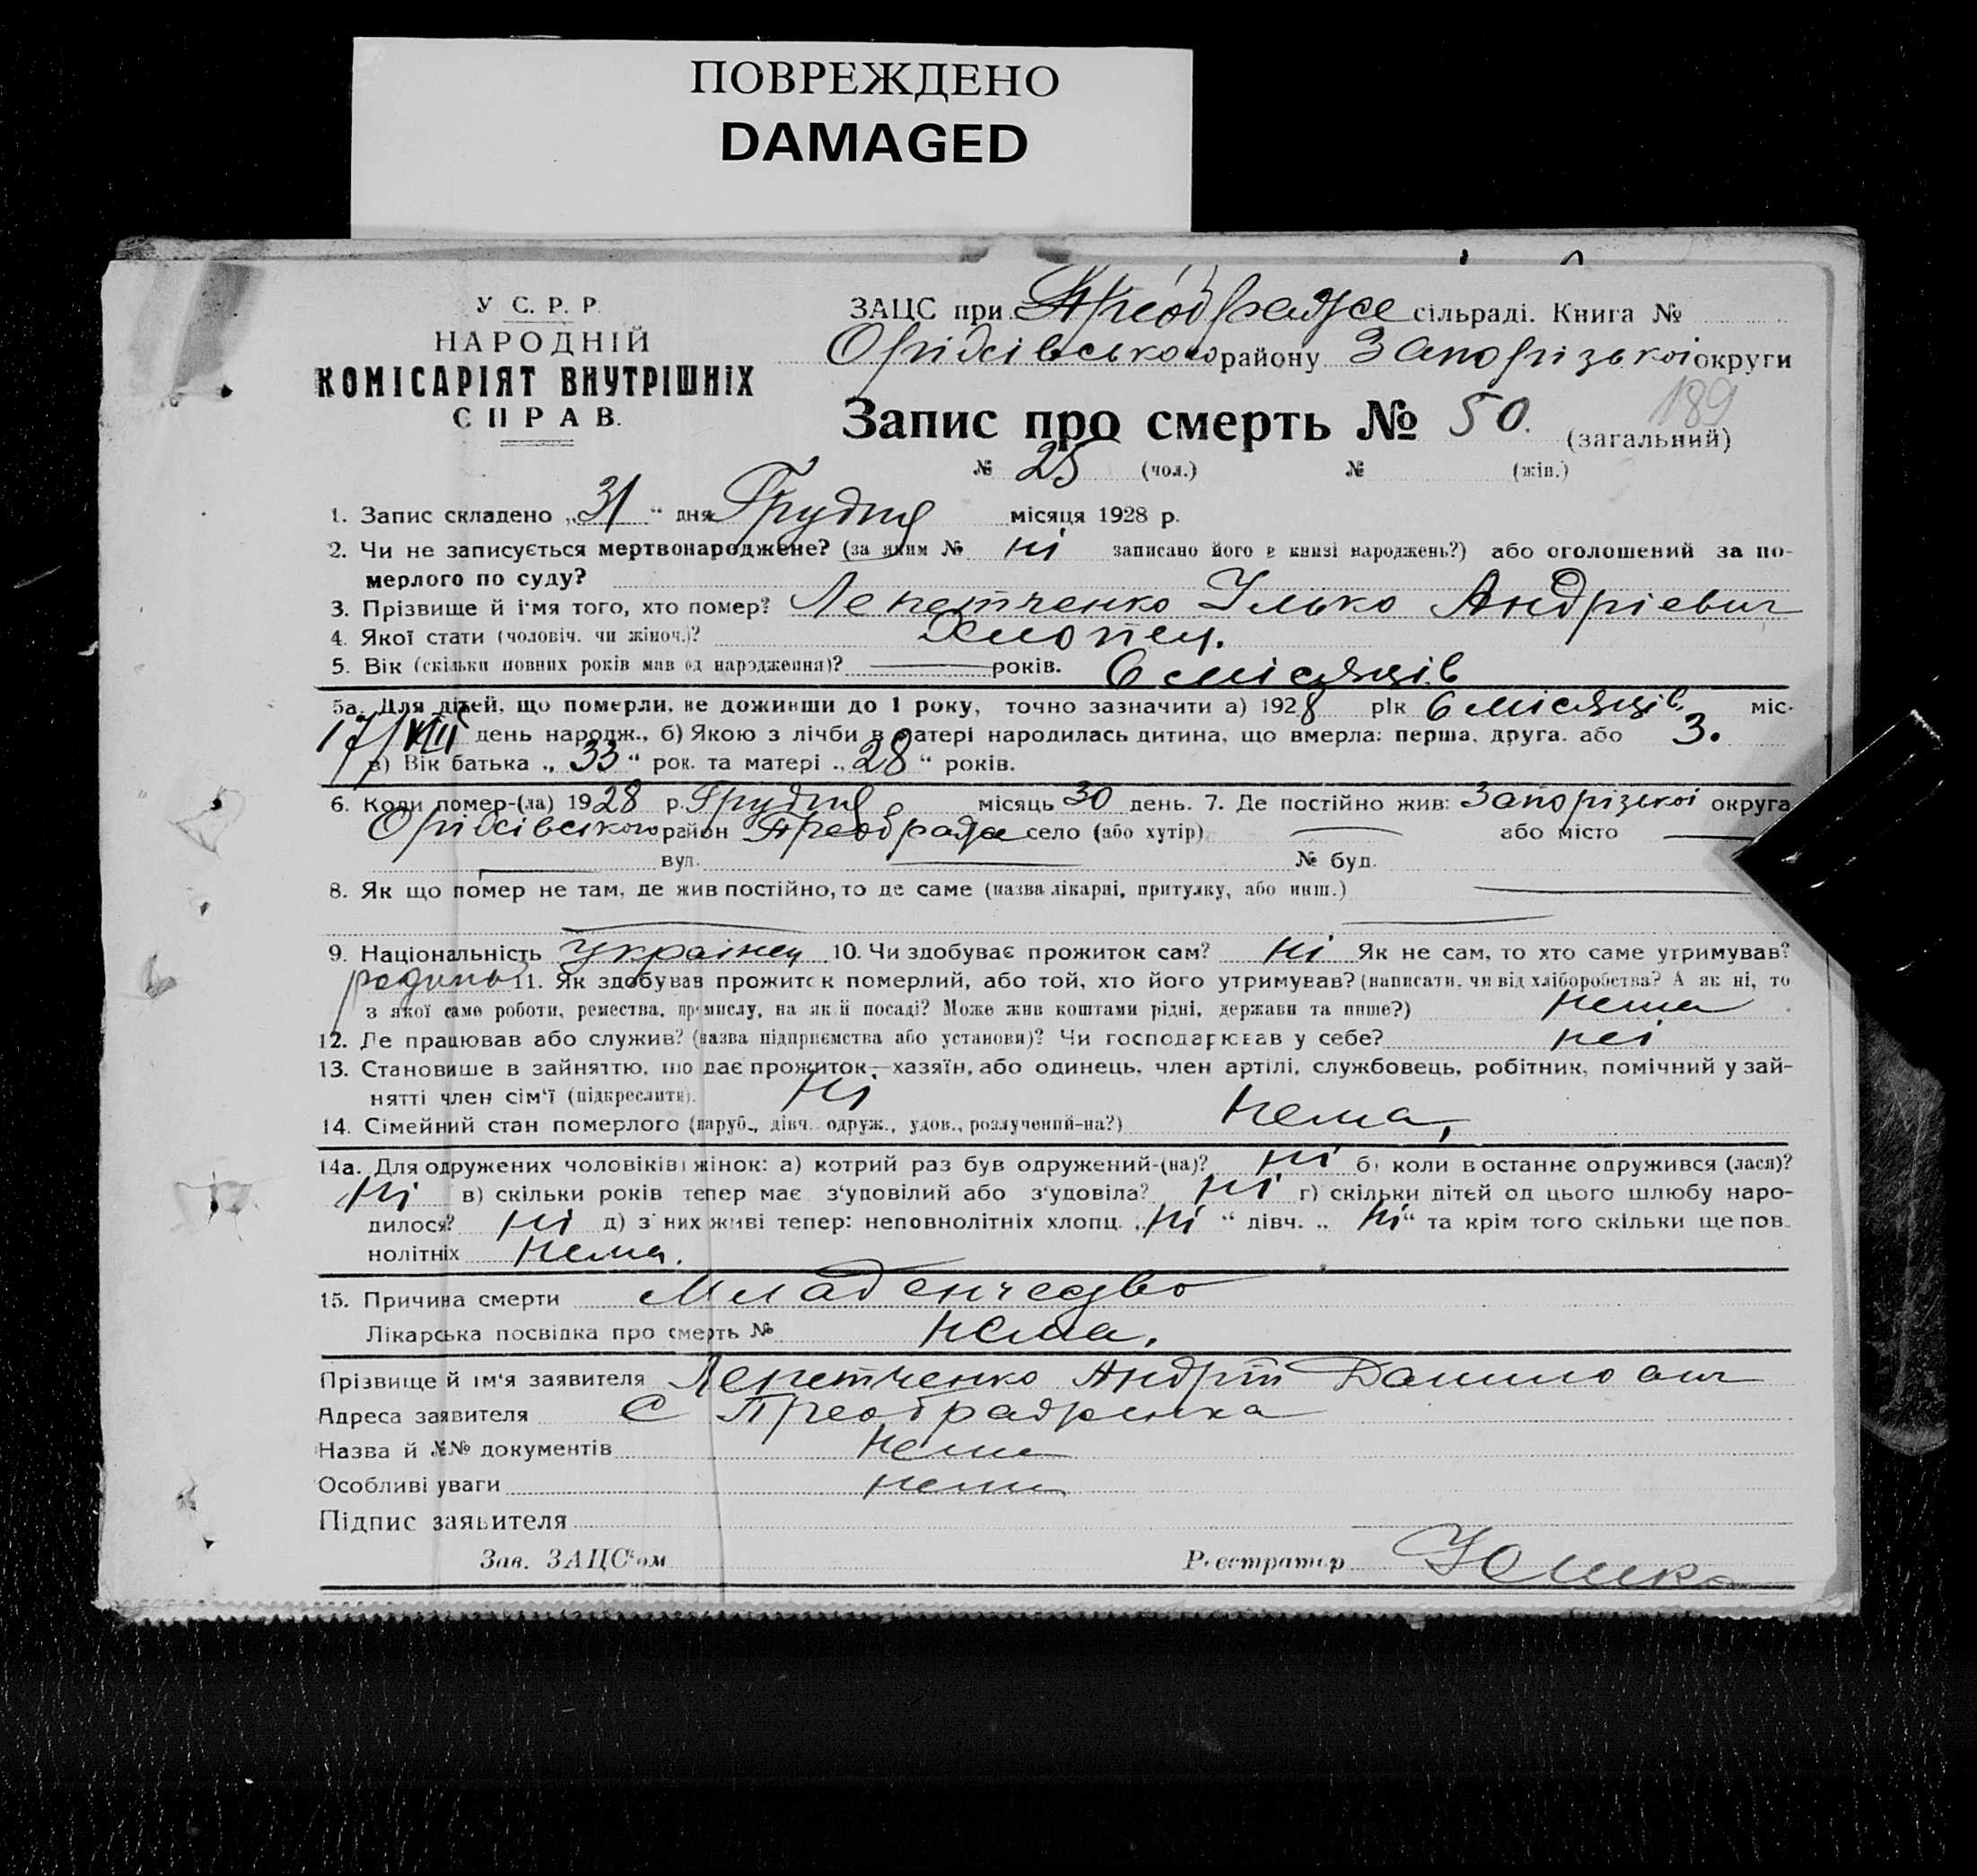 ПОВРЕЖДЕНО
DAMAGED
У С. Р. Р.
НАРОДНІЙ
КОМІСАРІЯТ ВНУТРІШНІХ
СПРАВ.
ЗАЦС при Преображе сільраді. Книга №
Оріхівського району Запорізької округи
Запис про смерть № 50. (загальний)
189
№ 25 (чол.) № (жін.)
1. Запис складено „31“ дня Грудня місяця 1928 р.
2. Чи не записується мертвонароджене? (за яким № ні записано його в книзі народжень?) або оголошений за по-
мерлого по суду?
3. Прізвище й ім'я того, хто помер? Лепетченко Ілько Андріевич
4. Якої стати (чоловіч. чи жіноч.)? Хлопец.
5. Вік (скільки повних років мав од народження)? років. 6 місяців
5а. Для дітей, що померли, не доживши до 1 року, точно зазначити а) 1928 рік 6 місяців міс.
17/VII день народж., б) Якою з лічби в матері народилась дитина, що вмерла: перша, друга. або 3.
в) Вік батька „33“ рок. та матері „28“ років.
6. Коли помер-(ла) 1928 р. Грудня місяць 30 день. 7. Де постійно жив: Запорізької округа
Оріхівського район Преображе село (або хутір) або місто
вул. № буд.
8. Як що помер не там, де жив постійно, то де саме (назва лікарні, притулку, або инш.)
9. Національність українец 10. Чи здобуває прожиток сам? ні Як не сам, то хто саме утримував?
родина 11. Як здобував прожиток померлий, або той, хто його утримував? (написати, чи від хліборобства? А як ні, то
з якої саме роботи, ремества, промислу, на якій посаді? Може жив коштами рідні, держави та инше?) нема
12. Де працював або служив? (назва підприємства або установи)? Чи господарював у себе? неі
13. Становише в зайняттю, що дає прожиток, хазяїн, або одинець, член артілі, службовець, робітник, помічний у зай-
нятті член сім'ї (підкреслити). ні
14. Сімейний стан померлого (паруб., дівч. одруж., удов., розлучений-на?) нема,
14а. Для одружених чоловіків і жінок: а) котрий раз був одружений-(на)? ні б) коли востаннє одружився (лася)?
ні в) скільки років тепер має з'удовілий або з'удовіла? ні г) скільки дітей од цього шлюбу наро-
дилося? ні д) з них живі тепер: неповнолітніх хлопц. „ні“ дівч. „ні“ та крім того скільки ще пов-
нолітніх нема.
15. Причина смерти Младенчество
Лікарська посвідка про смерть № нема,
Прізвище й ім'я заявителя Лепетченко Андрій Данилович
Адреса заявителя С Преображенка
Назва й №№ документів нема
Особливі уваги нема
Підпис заявителя
Зав. ЗАЦС'ом Реєстратор